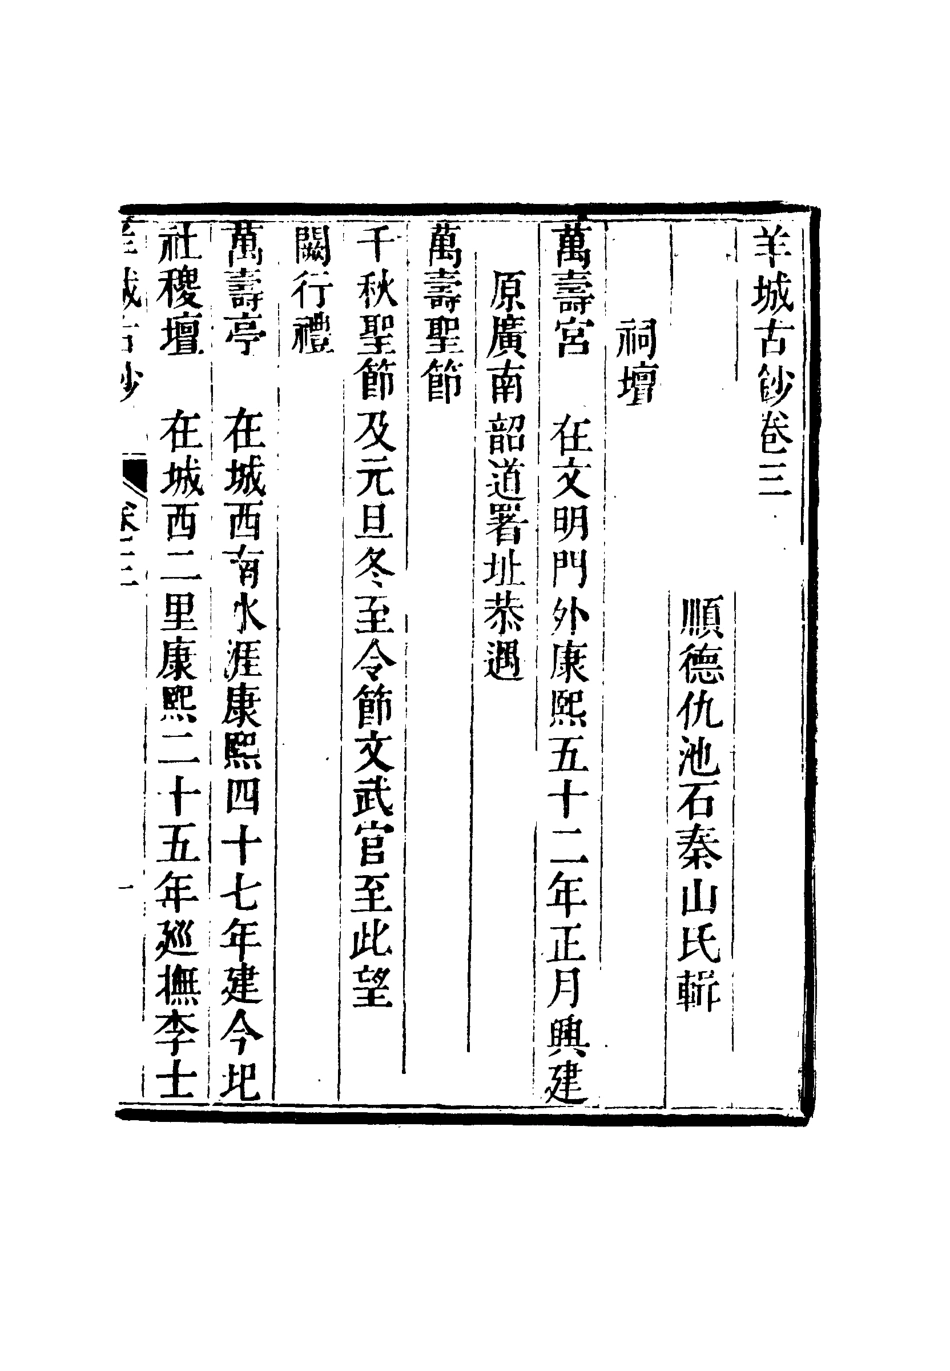 羊城古鈔卷三
順德仇池石秦山氏輯
祠壇
萬壽宮　在文明門外康熙五十二年正月興建
原廣南韶道署址恭遇
萬壽聖節
千秋聖節及元旦冬至令節文武官至此望
闕行禮
萬壽亭　在城西南水涯康熙四十七年建今圯
社稷壇　在城西二里康熙二十五年廵撫李士
羊城古鈔　卷三　一